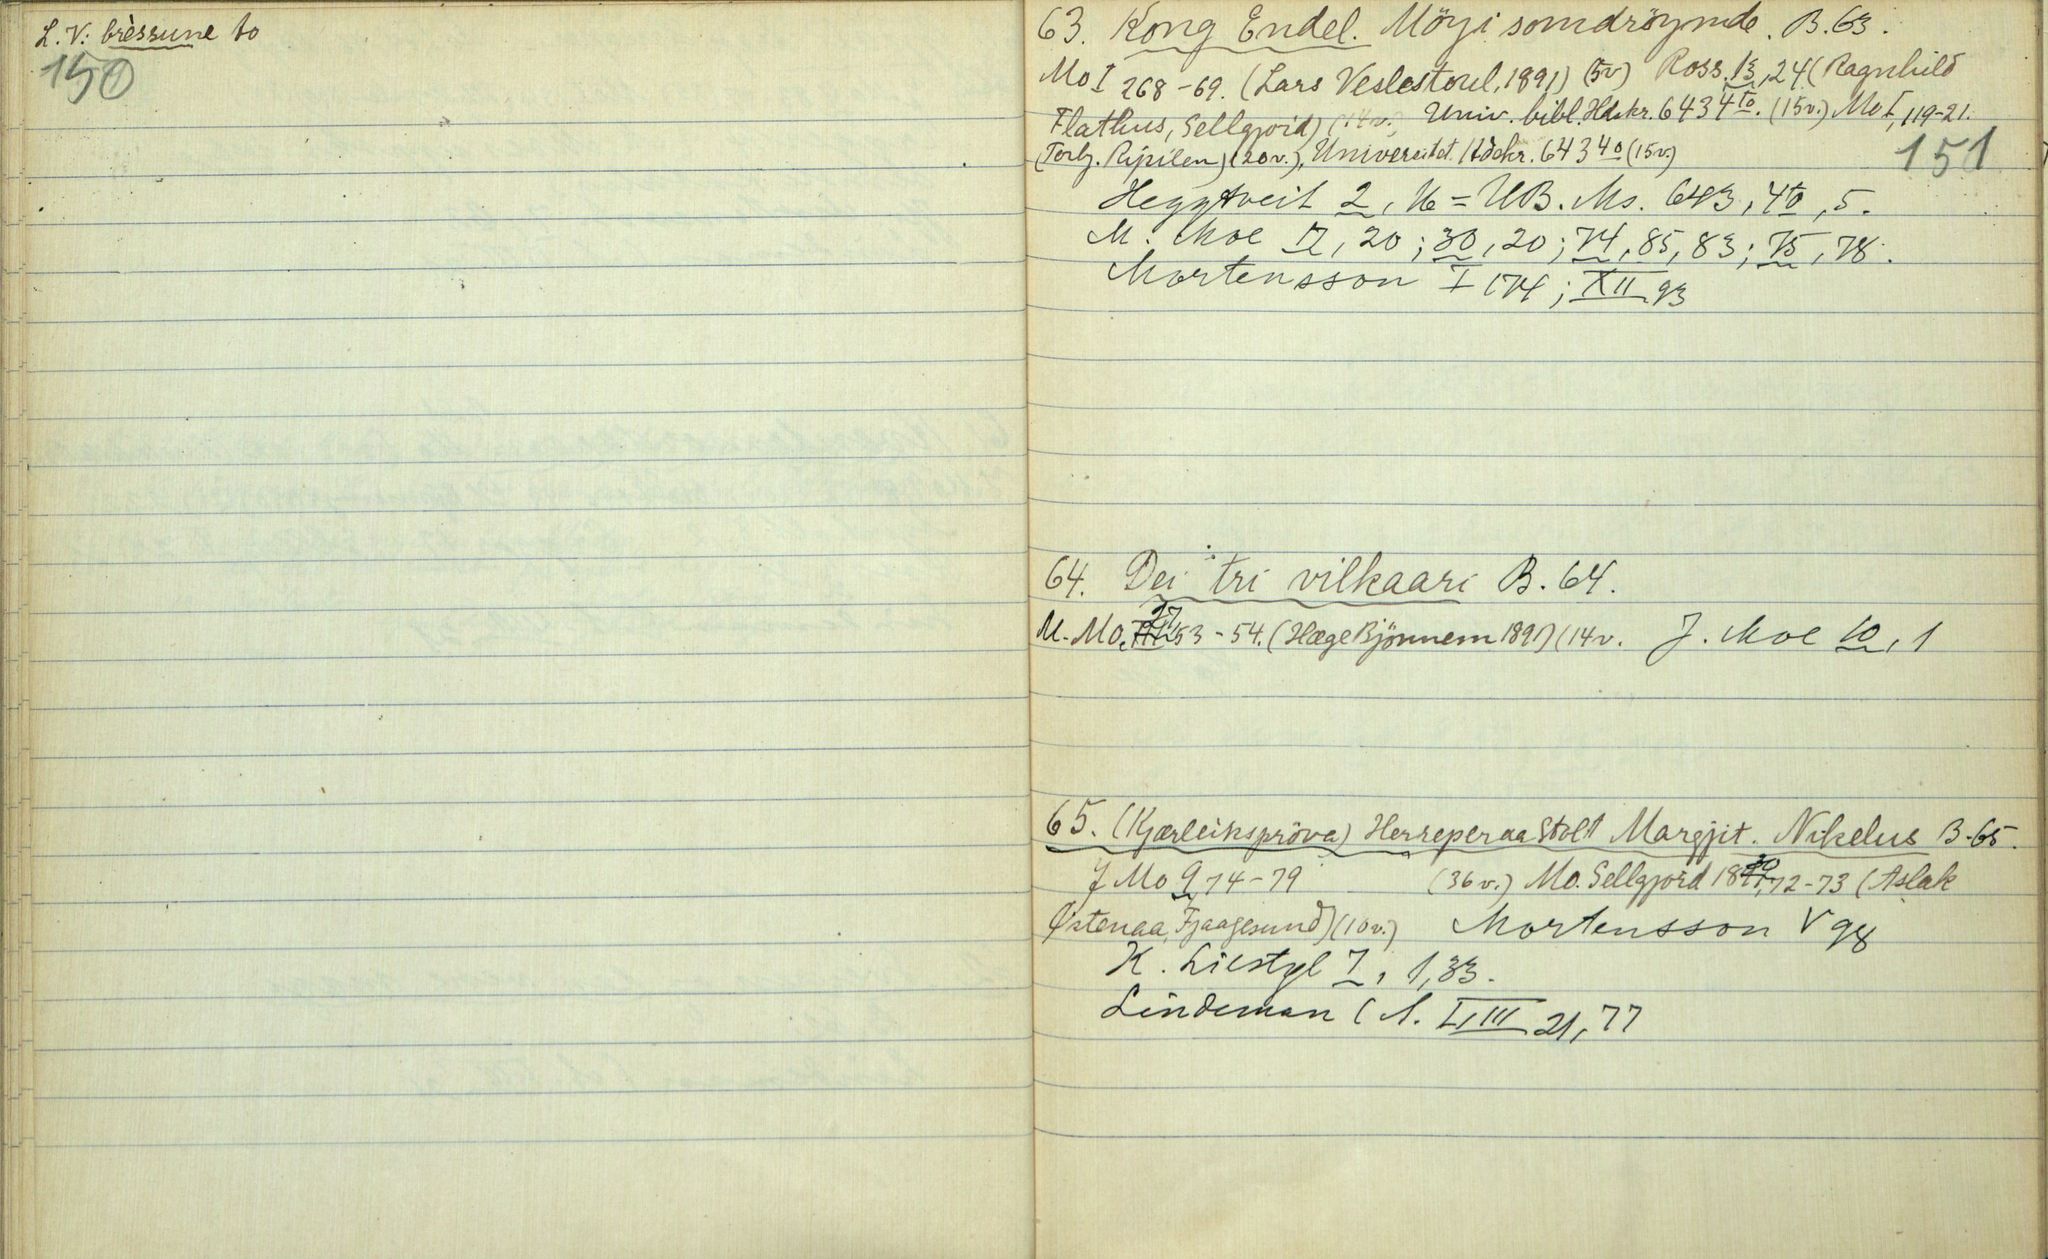 L. V: brèssune to
150
63. Kong Endel. Möyi somdröymde. B.63.
Mo I 268-69. (Lars Veslestoul, 1891) (5v) Ross. 13, 24 (Ragnhild
Flathus, Sellgjord) (14v.) Univ. bibl. Hdskr. 643 4to. (15v.) Mo I, 119-21.
(Torbj. Ripilen) (20v.), Universitet. Hdskr. 643 4o (15v.)
151
Heggtveit 2, 16 = UB. Ms. 643, 4to, 5.
M. Moe 17, 20; 30, 20; 74, 85, 83; 75, 78.
Mortensson I 174; XII 93
64. Dei tri vilkaari B. 64.
M. Mo. 27 53-54. (Hæge Bjönnem 1891) (14v. J. Moe 10, 1
65. (Kjærleikspröva) Herreper aa Stolt Margjit. Nikelus B.65.
J Mo 9 74-79 (36v.) Mo. Sellgjord 1890, 72-73 (Aslak
Østenaa, Fjaagesund) (10v.) Mortensson V 98
K. Liestøl 7, 1, 33.
Lindeman (A. I, III 21, 77